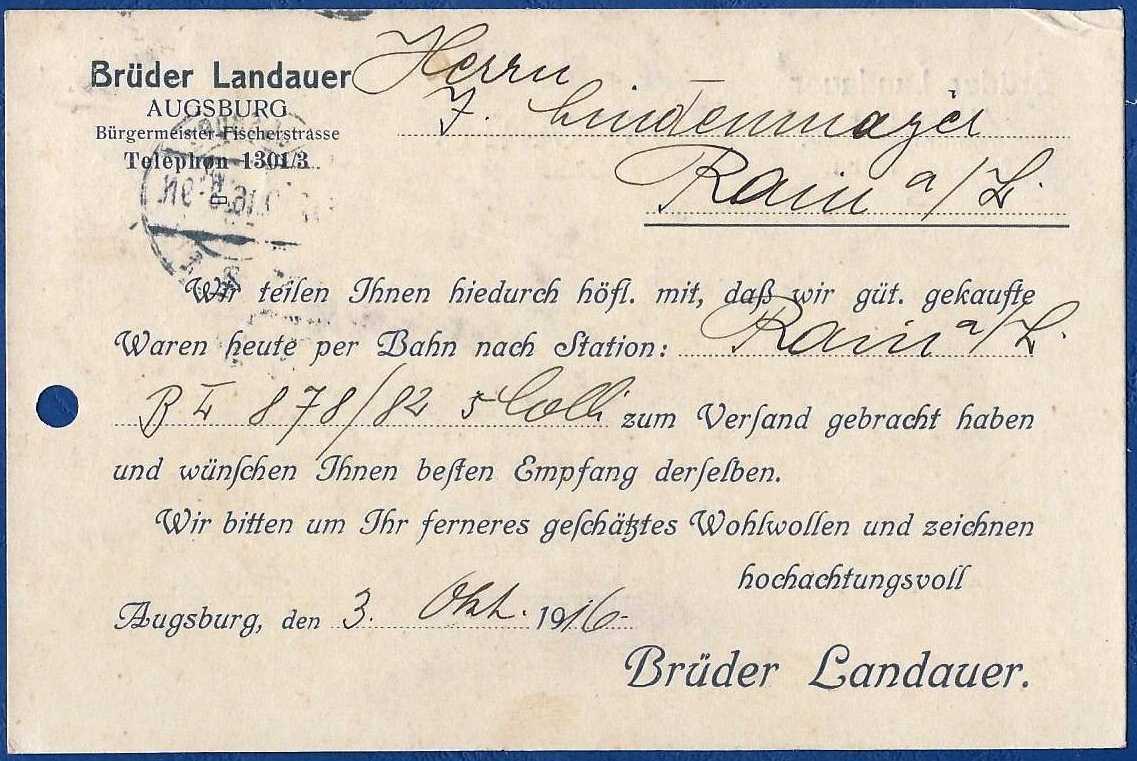 Brüder Landauer
AUGSBURG
Bürgermeister-Fischerstrasse
Telephon 1301/3
Herrn
J. Lindenmayer
Rain a/L.
Wir teilen Ihnen hiedurch höfl. mit, daß wir güt. gekaufte
Waren heute per Bahn nach Station: Rain a/L.
B I 878/82 5 Colli zum Verſand gebracht haben
und wünſchen Ihnen beſten Empfang derſelben.
Wir bitten um Ihr ferneres geſchätztes Wohlwollen und zeichnen
hochachtungsvoll
Augsburg, den 3. Okt. 1916
Brüder Landauer.